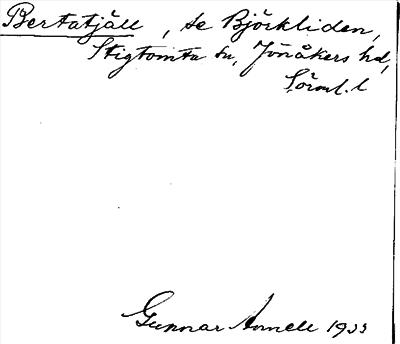 Bertatjäll, se Björkliden,
Stigtomta sn, Jönåkers hd,
Sörml. l
Gunnar Annell 1933